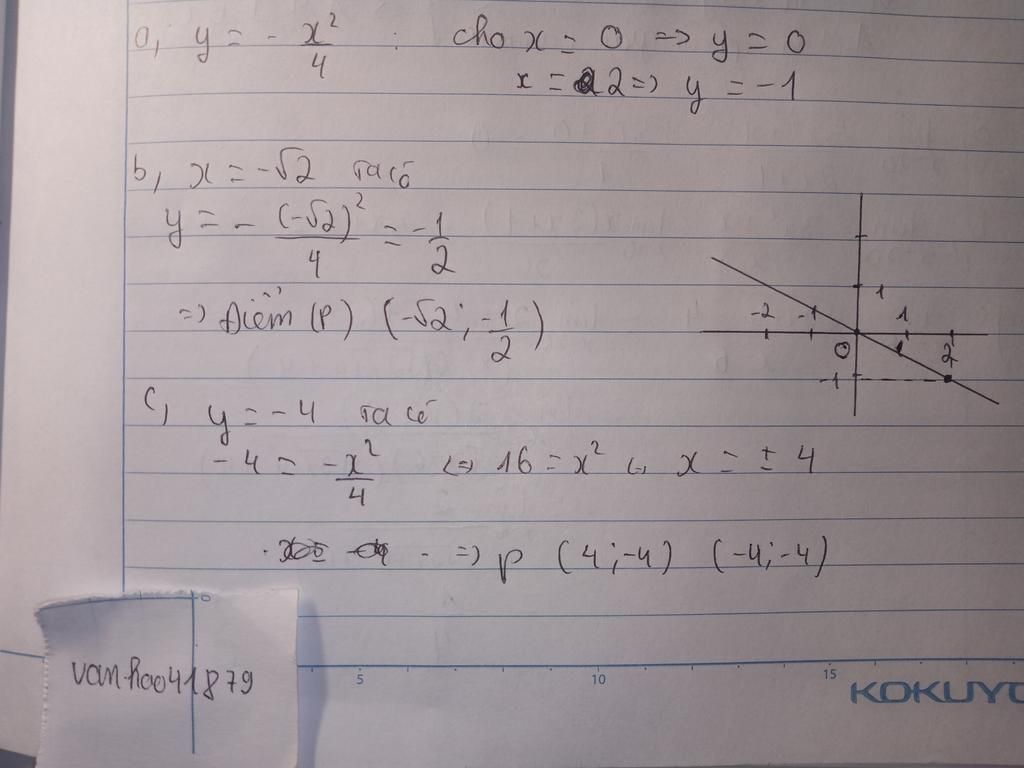 a, y = - x²/4 : cho x = 0 => y = 0
x = 2 => y = -1
b, x = -√2 ta có
y = - (-√2)²/4 = -1/2
=> Điểm (P) (-√2; -1/2)
1
-2 -1 1
0 1 2
-1
c, y = -4 ta có
-4 = -x²/4 <=> 16 = x² <=> x = ± 4
=> P (4; -4) (-4; -4)
van.hao041879
5 10 15
KOKUYO